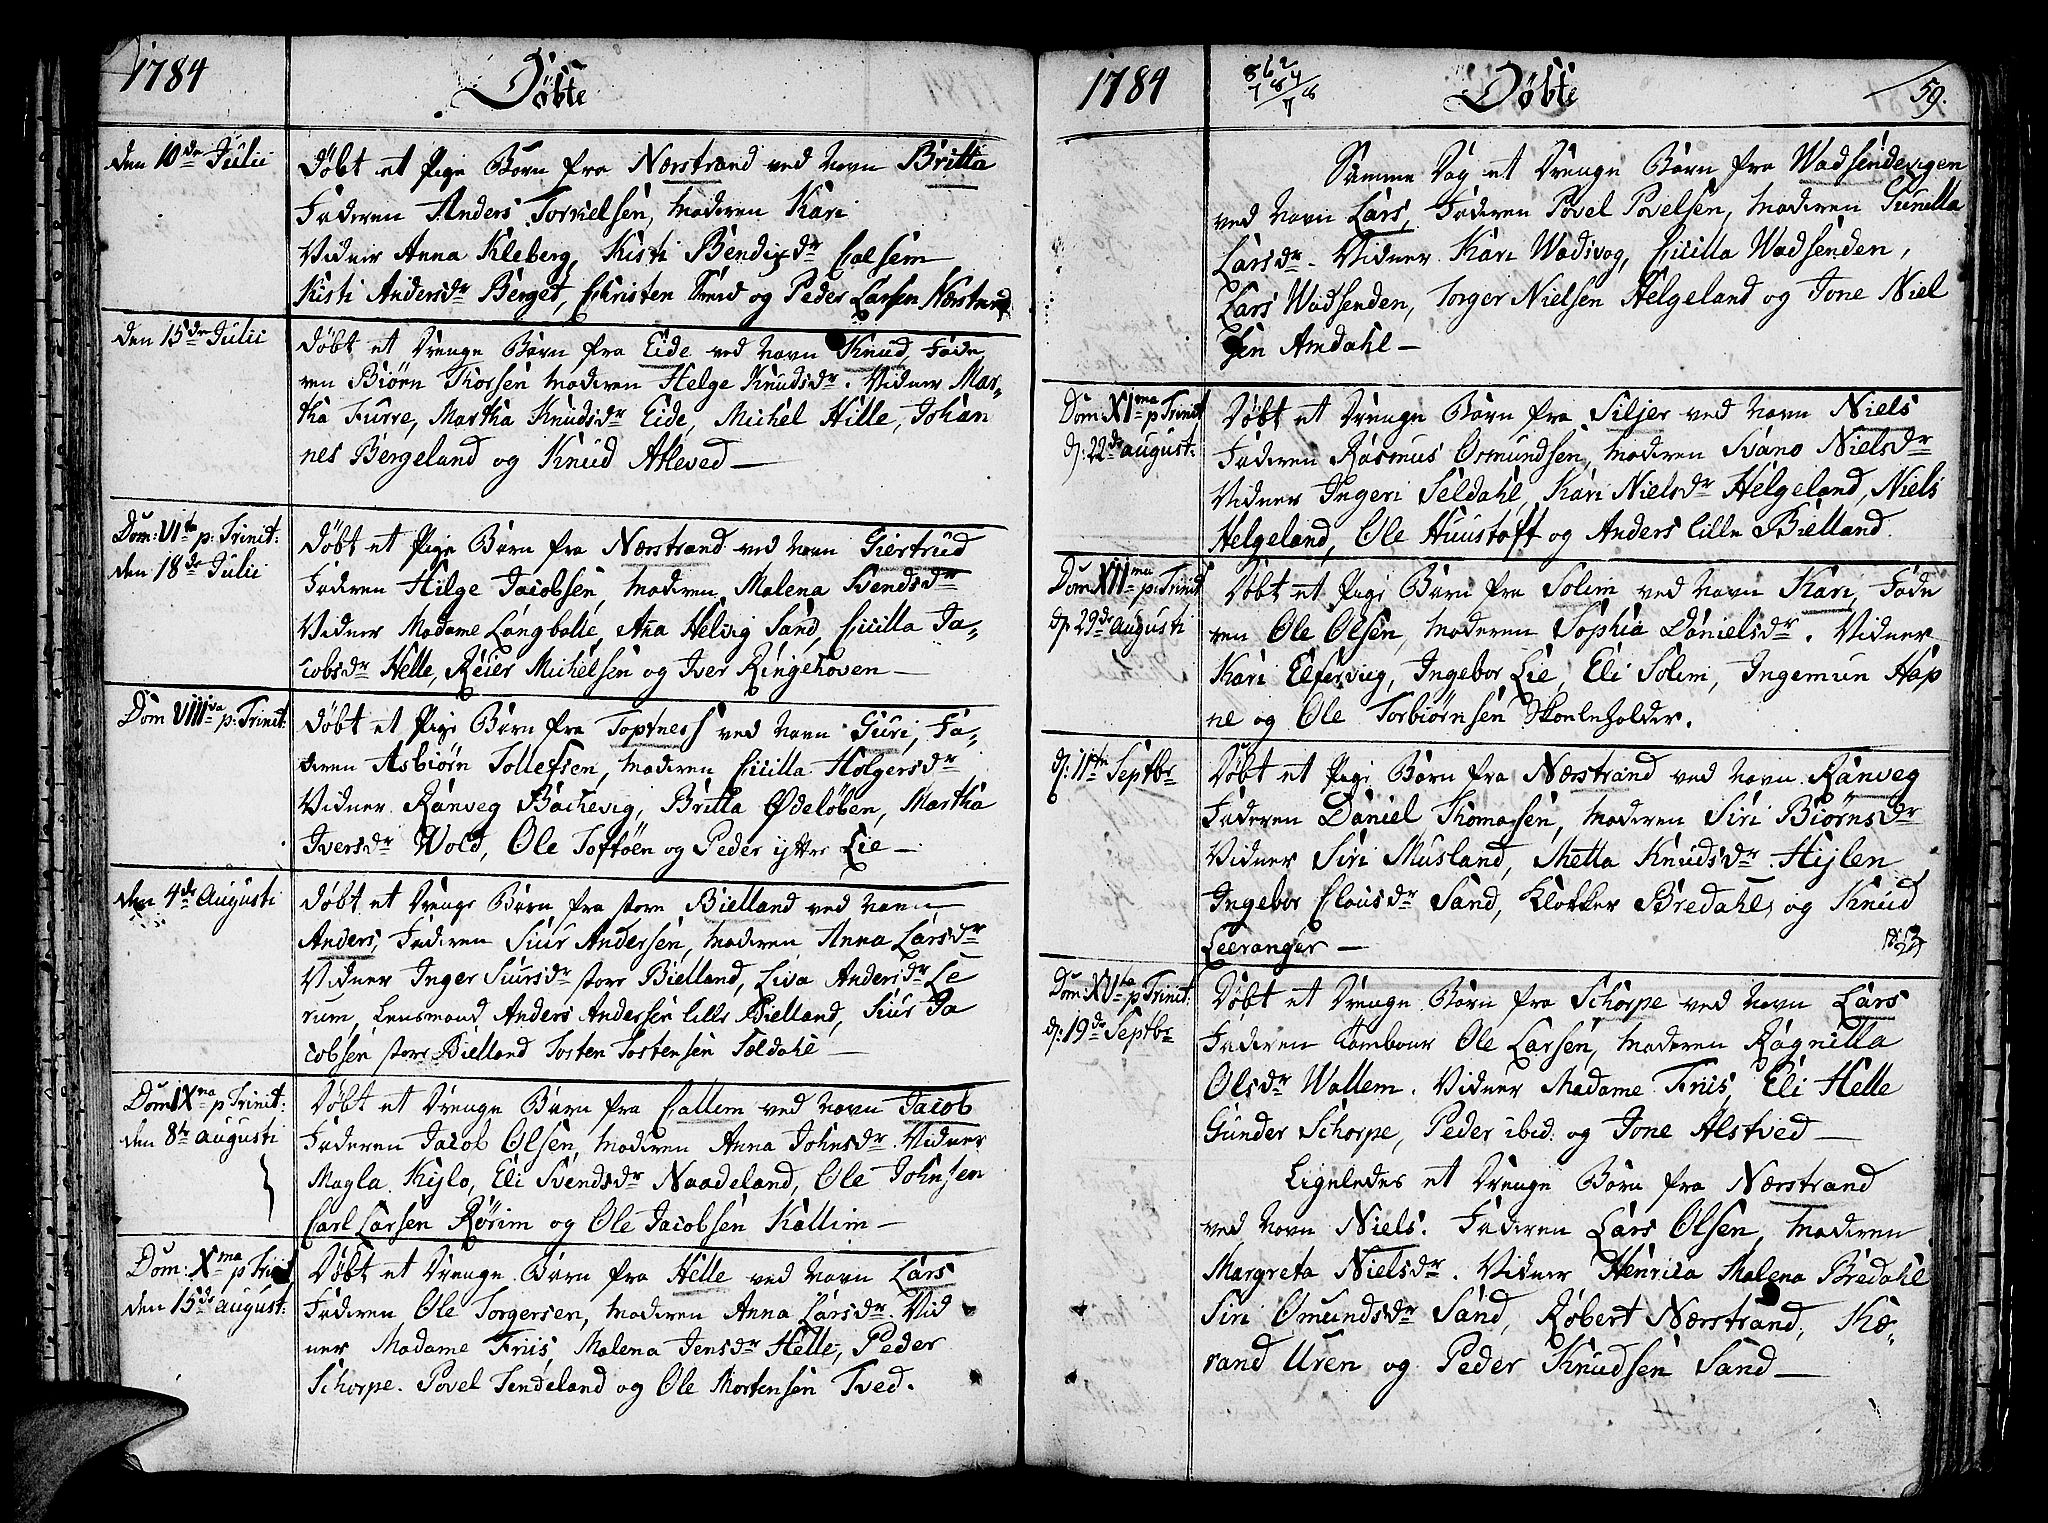 1784
Døbte
den 10de Julii
Døbt et Pige Barn fra Nærstrand ved Navn Britta
Faderen Anders Torkielsen, Moderen Kari
Vidner Anna Kleberg, Kisti Bendixdr Calsem
Kisti Andersdr Berget, Christen Smed og Peder Larsen Nærstrand
den 15de Julii
Døbt et Drenge Barn fra Eide ved Navn Knud, Fade
ren Biørn Thorsen Moderen Helge Knudsdr. Vidner Mar-
tha Furre, Martha Knudsdr Eide, Michel Hille, Johan
nes Bergeland og Knud Atleved —
Dom: VIta p: Trinit:
den 18de Julii
Døbt et Pige Barn fra Nærstrand ved Navn Giertrud
Faderen Hilge Jacobsen, Moderen Malena Svendsdr
Vidner Madame Langballe, Anna Helvig Sand, Cicilla Ja-
cobsdr Helle, Reier Michelsen og Iver Ringehoven —
Dom VIIIva p: Trinit:
Døbt et Pige Barn fra Toptness ved Navn Guri, Fa-
deren Asbiørn Tollefsen, Moderen Cicilla Holgersdr
Vidner Ranveg Bachevig, Britta Ødeløben, Martha
Iversdr Wold, Ole Toftøen og Peder ytre Lie —
den 4de Augusti
Døbt et Drenge Barn fra store Bielland ved Navn
Anders, Faderen Siur Andersen, Moderen Anna Larsdr
Vidner Inger Siursdr store Bielland, Lisa Andersdr Le
rum, Lensmand Anders Andersen lille Bielland, Siur Ja
cobsen store Bielland Tosten Tostensen Søldahl —
Dom IXna p Trinit:
den 8de augusti
Døbt et Drenge Barn fra Callem ved Navn Jacob
Faderen Jacob Olsen, Moderen Anna Johnsdr. Vidner
Magla Kislo, Eli Svendsdr Naadeland, Ole Johnsen
Carl Larsen Rørim og Ole Jacobsen Kallim —
Dom: Xma p Trinit
den 15de august:
Døbt et Drenge Barn fra Helle ved Navn Lars
Faderen Ole Torgersen, Moderen Anna Larsdr. Vid
ner Madame Friis, Malena Jensdr Helle, Peder
Schorpe. Povel Tendeland og Ole Mortensen Tved.
1784
Døbte
59.
Samme Dag et Drenge Barn fra Wadsendevigen
ved Navn Lars, Faderen Povel Povelsen, Moderen Gunilla
Larsdr. Vidner Kari Wadsvog, Cicilla Wadsenden,
Lars Wadsenden, Torger Nielsen Helgeland og Jone Niel
sen Amdahl —
Dom XIma p Trinit
d: 22de august:
Døbt et Drenge Barn fra Siljer ved Navn Niels
Faderen Rasmus Osmundsen, Moderen Svano Nielsdr
Vidner Ingeri Seldahl, Kari Nielsdr Helgeland, Niels
Helgeland, Ole Huustoft og Anders lille Bielland.
Dom XIIma p: Trinit
d: 29de augusti
Døbt et Pige Barn fra Solim ved Navn Kari, Fade
ren Ole Olsen, Moderen Sophia Danielsdr. Vidner
Kari Elfervig, Ingebor Lie, Eli Solim, Ingemun Hap
ne og Ole Torbiørnsen Skoleholder.
d: 11te Septbr
Døbt et Pige Barn fra Nærstrand ved Navn Ranveg
Faderen Daniel Thomassen, Moderen Siri Biørnsdr
Vidner Siri Musland, Metta Knudsdr Hijlen
Ingebor Clausdr Sand, Klokker Bredahl, og Knud
Leeranger —
Dom: XVta p Trinit:
d: 19de Septbr
Døbt et Drenge Barn fra Schorpe ved Navn Lars
Faderen Tambour Ole Larsen, Moderen Ragnilla
Olsdr Wallem. Vidner Madame Friis, Eli Helle
Gunder Schorpe, Peder ibid. og Jone Alstved —
Ligeledes et Drenge Barn fra Nærstrand
ved Navn Niels. Faderen Lars Olsen, Moderen
Margreta Nielsdr. Vidner Henrica Malena Bredahl
Siri Omundsdr Sand, Robert Nærstrand, Kæ-
rand Uren og Peder Knudsen Sand —